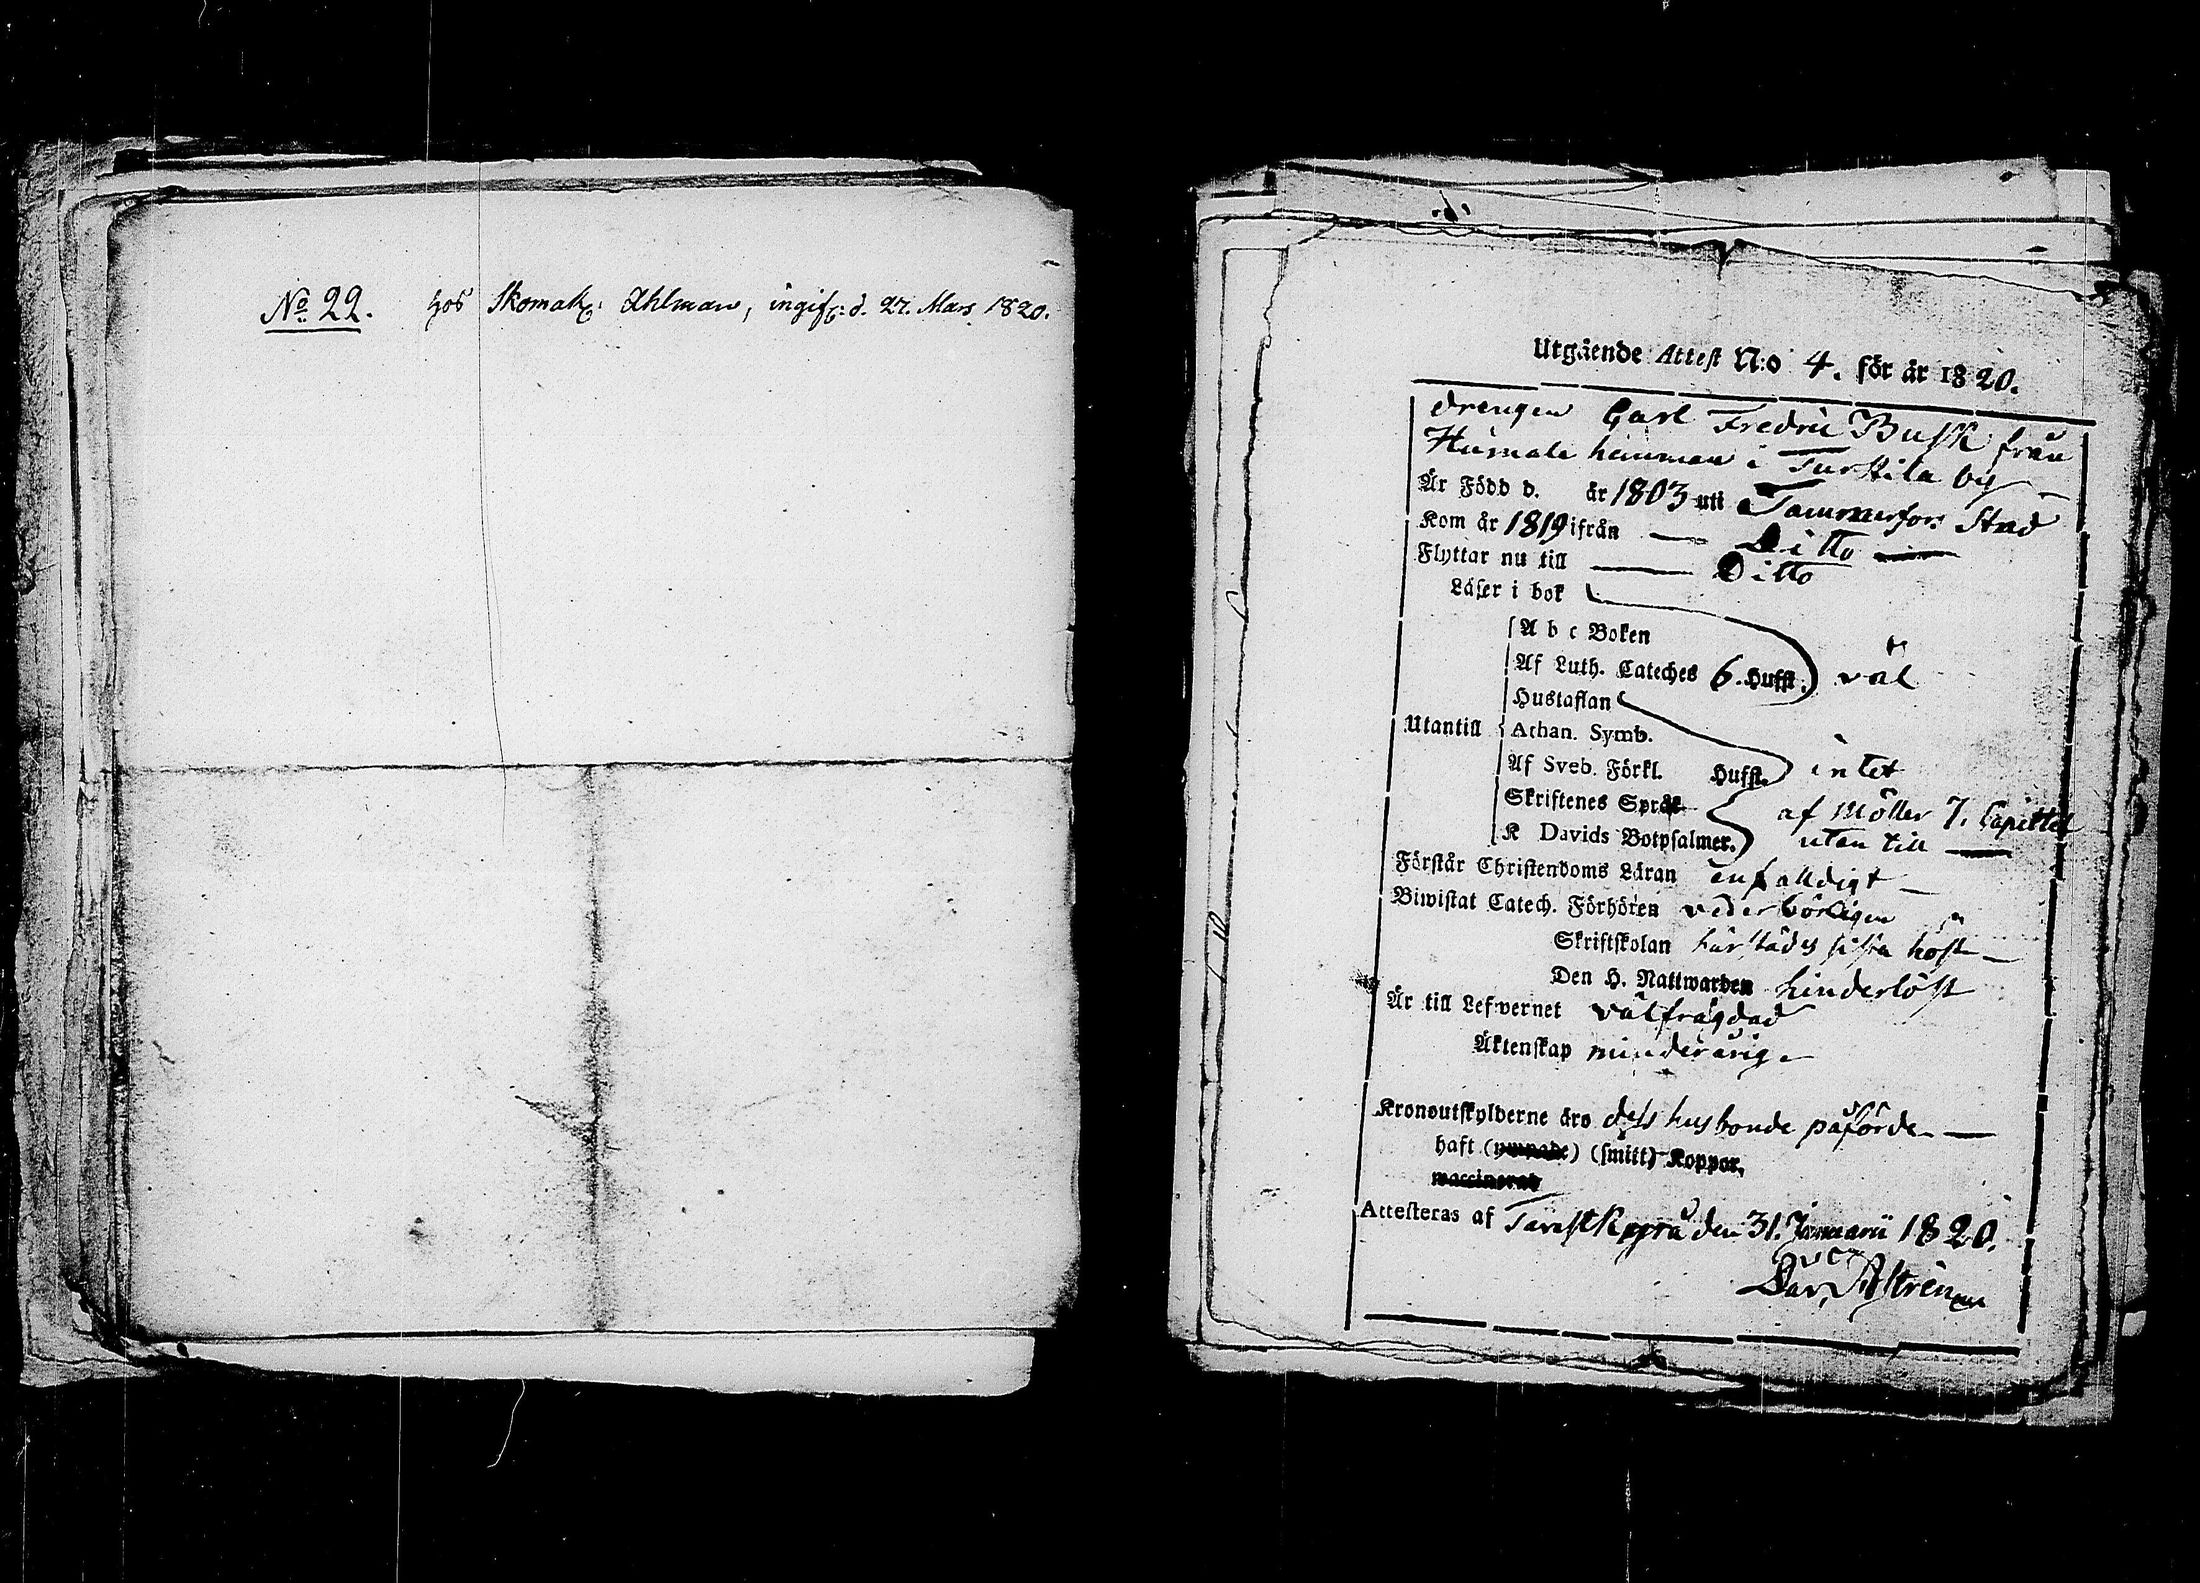 No 22. hos Skomak: Ahlman, ingif: d. 27. Mars 1820.
Utgående Attest N:o 4. för år 1820.
drengen Carl Fredric Busk från
Humala hemman i Turkila by
Är Född d. år 1803 uti Tammerfors Stad
Kom år 1819 ifrån — Ditto —
Flyttar nu till — Ditto
Läser i bok
A b c Boken
Af Luth. Cateches 6. Hufst. väl
Hustaflan
Utantill Athan. Symb.
Af Sveb. Förkl. Hufst. intet
Skriftenes Språk af Möller 7. Capittel
K Davids Botpsalmer. utan till —
Förstår Christendoms Läran enfalldigt —
Biwistat Catech. Förhören vederbörligen
Skriftskolan härstädes sista höst —
Den H. Nattwarden hinderlöst
Är till Lefvernet välfrägdad
Äktenskap minderårig
Kronoutskylderne äro dess husbonde påförde —
haft (ympade) (smitt) Koppor,
waccinerad
Attesteras af Tavastkyrö den 31. Januarii 1820.
Dav. Astrén